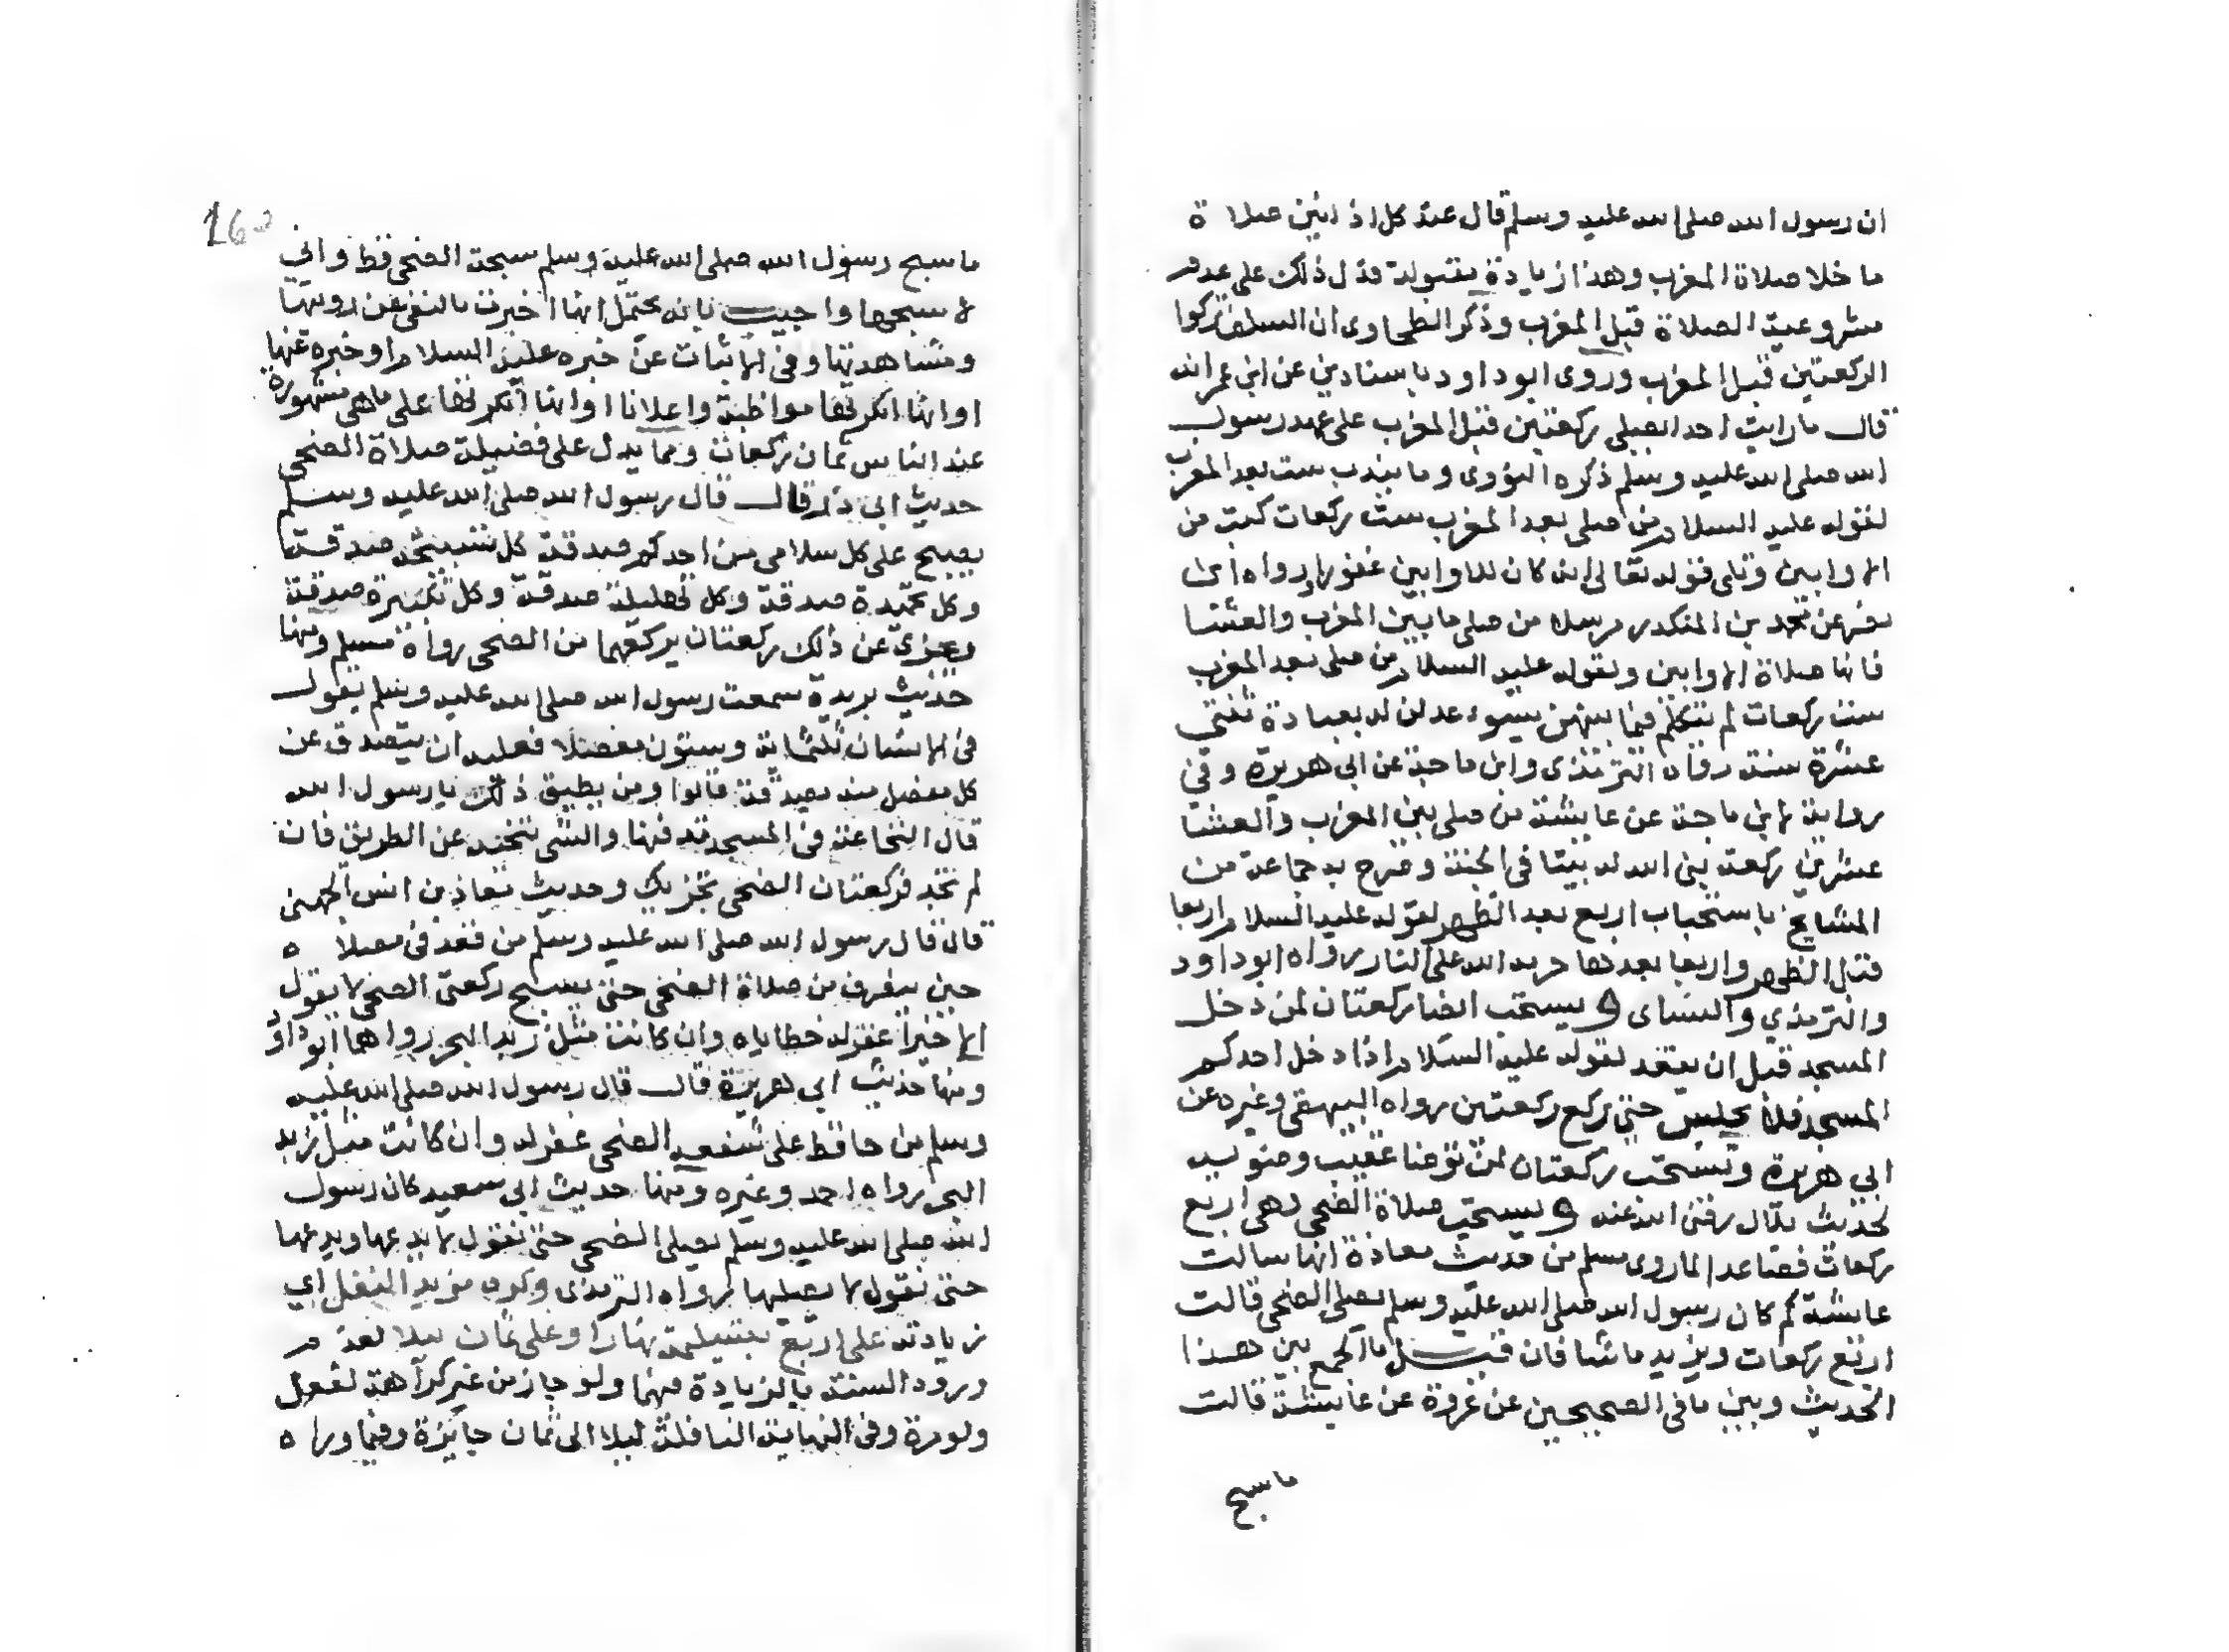 ان رسول الله صلى الله عليه وسلم قال عند كل اذانين صلاة
ما خلا صلاة المغرب وهذا زيادة مقبولة فدل ذلك على عدم
مشروعية الصلاة قبل المغرب وذكر الطحاوى ان السلف تركوا
الركعتين قبل المغرب وروى ابو داود باسناده عن ابن عمر انه
قال ما رايت احدا يصلى ركعتين قبل المغرب على عهد رسول
الله صلى الله عليه وسلم ذكره النووى وما يندب ست بعد المغرب
لقوله عليه السلام من صلى بعد المغرب ست ركعات كتب من
الاوابين وتلى قوله تعالى انه كان للاوابين غفورا رواه ابن
نصر عن محمد بن المنكدر مرسلا من صلى ما بين المغرب والعشا
فانها صلاة الاوابين ولقوله عليه السلام من صلى بعد المغرب
ست ركعات لم يتكلم فيما بينهن بسوء عدلن له بعبادة ثنتى
عشرة سنة رواه الترمذى وابن ماجة عن ابى هريرة وفى
رواية لابن ماجة عن عايشة من صلى بين المغرب والعشا
عشرين ركعة بنى الله له بيتا فى الجنة وصرح به جماعة من
المشايخ باستحباب اربع بعد الظهر لقوله عليه السلام اربعا
قبل الظهر واربعا بعدها حرمه الله على النار رواه ابو داود
والترمذي والنساى و يستحب ايضا ركعتان لمن دخل
المسجد قبل ان يقعد لقوله عليه السلام اذا دخل احدكم
المسجد فلا يجلس حتى يركع ركعتين رواه البيهقى وغيره عن
ابي هريرة وتستحب ركعتان لمن توضا عقيب وضوئه
لحديث بلال رضى الله عنه و يستحب صلاة الضحى وهى اربع
ركعات فصاعدا لما روى مسلم من حديث معاذة انها سالت
عايشة كم كان رسول الله صلى الله عليه وسلم يصلى الضحى قالت
اربع ركعات ويزيد ما شا فان قيل ما الجمع بين هذا
الحديث وبين ما فى الصحيحين عن عروة عن عايشة قالت
ما سبح
ما سبح رسول الله صلى الله عليه وسلم سبحة الضحى قط وانى
لاسبحها واجيب بانه يحتمل انها اخبرت بالنفى عن رويتها
ومشاهدتها وفى الاثبات عن خبره عليه السلام او خبره عنها
او انها انكرتها مواظبة واعلانا او انها انكرتها على ما هى مشهورة
عند الناس ثمان ركعات ومما يدل على فضيلة صلاة الضحى
حديث ابى ذر قال قال رسول الله صلى الله عليه وسلم
يصبح على كل سلامى من احدكم صدقة كل تسبيحة صدقة
وكل تحميدة صدقة وكل تهليلة صدقة وكل تكبيرة صدقة
ويجزى عن ذلك ركعتان يركعهما من الضحى رواه مسلم ومنها
حديث بريدة سمعت رسول الله صلى الله عليه وسلم يقول
فى الانسان ثلثماية وستون مفصلا فعليه ان يتصدق عن
كل مفصل منه بصدقة قالوا ومن يطيق ذلك يا رسول الله
قال النخاعة فى المسجد تدفنها والشى تنحيه عن الطريق فان
لم تجد فركعتان الضحى تجزيك وحديث معاذ بن انس الجهنى
قال قال رسول الله صلى الله عليه وسلم من قعد فى مصلاه
حين ينصرف من صلاة الضحى حتى يسبح ركعتى الضحى لا يقول
الا خيرا غفر له خطاياه وان كانت مثل زبد البحر رواهما ابو داود
ومنها حديث ابى هريرة قال قال رسول الله صلى الله عليه
وسلم من حافظ على شفعة الضحى غفر له وان كانت مثل زبد
البحر رواه احمد وغيره ومنها حديث ابى سعيد كان رسول
الله صلى الله عليه وسلم يصلى الضحى حتى نقول لا يدعها ويدعها
حتى نقول لا يصليها رواه الترمذى وكره مزيد النفل اي
زيادته على اربع بتسليمة نهارا وعلى ثمان ليلا لعدم
ورود السنة بالزيادة فيهما ولو جاز من غير كراهة لفعل
ولو مرة وفى النهاية النافلة ليلا الى ثمان جايزة وفيما وراه